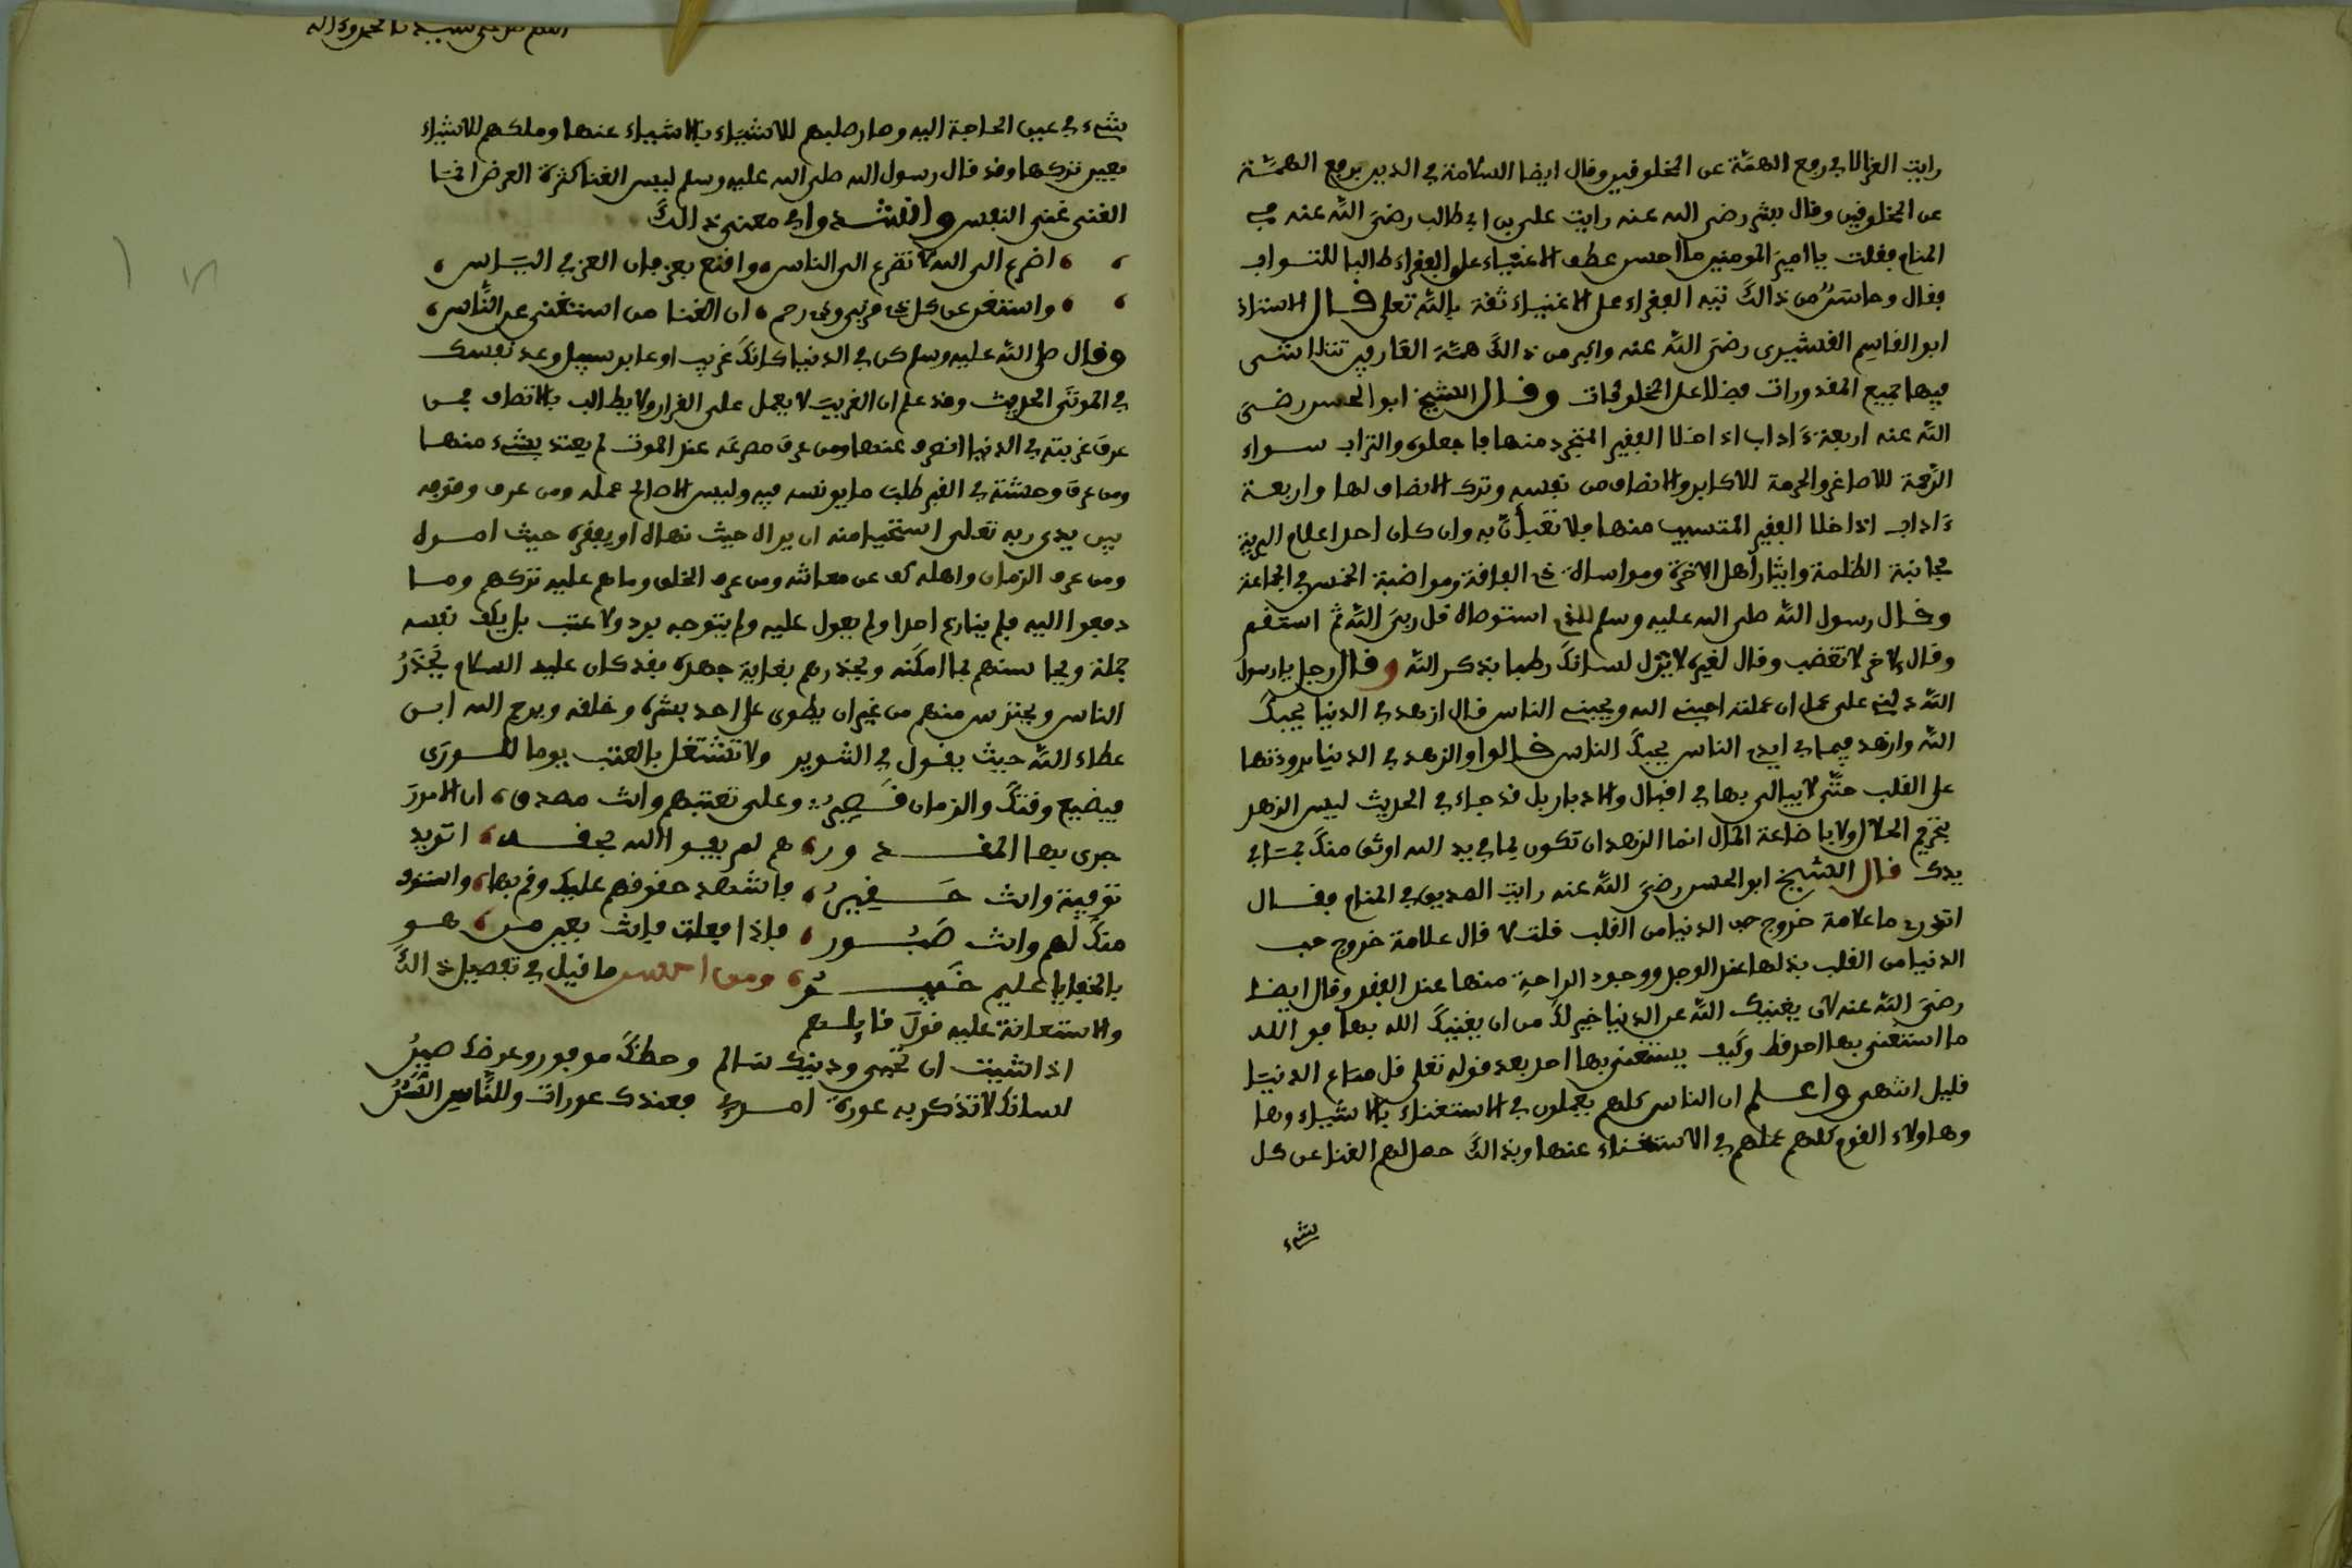 رايت العز الا في رفع الهمة عن المخلوقين وقال ايضا السلامة في الدين برفع الهمة
عن المخلوقين وقال بشر رضي الله عنه رايت علي بن ابي طالب رضي الله عنه في
المنام فقلت يا امير المومنين ما احسن عطف الاغنياء على الفقراء طالبا للثواب
فقال واحسن من ذالك تيه الفقراء على الاغنياء ثقة بالله تعلى قال الاستاذ
ابو القاسم القشيري رضي الله عنه واكبر من ذالك همة العارفين تتلاشى
فيها جميع المقدورات فضلا على المخلوقات وقال الشيخ ابو الحسن رضي
الله عنه اربعة ءاداب اذا خلا الفقير المتجرد منها فاجعله والتراب سواء
الرحمة للاصاغر والحرمة للاكابر والانصاف من نفسه وترك الانصاف لها واربعة
ءاداب اذا خلا الفقير المتسبب منها فلا تعبأن به وان كان احد اعلام البرية
مجانبة الظلمة وايثار اهل الاخرة ومواساة ذي الفاقة ومواضبة الخمس في الجماعة
وقال رسول الله صلى الله عليه وسلم للذي استوصاه قل ربي الله ثم استقم
وقال لاخر لا تغضب وقال لغيره لا يزل لسانك رطبا بذكر الله وقال رجل يا رسول
الله دلني على عمل ان عملته احبني الله ويحبني الناس قال ازهد في الدنيا يحبك
الله وازهد فيما في ايدي الناس يحبك الناس قالوا والزهد في الدنيا برودتها
على القلب حتى لا يبالي بها في اقبال والادبار بل قد جاء في الحديث ليس الزهد
بتحريم الحلال ولا باضاعة المال انما الزهد ان تكون بما في يد الله اوثق منك بما في
يدك قال الشيخ ابو الحسن رضي الله عنه رايت الصديق في المنام فقال
اتدري ما علامة خروج حب الدنيا من القلب قلت لا قال علامة خروج حب
الدنيا من القلب بذلها عند الوجد ووجود الراحة منها عند الفقد وقال ايضا
رضي الله عنه لان يغنيك الله عن الدنيا خير لك من ان يغنيك الله بها فو الله
ما استغنى بها احد قط وكيف يستغني بها احد بعد قوله تعلى قل متاع الدنيا
قليل انتهى واعلم ان الناس كلهم يعملون في الاستغناء بالاشياء وها
وهاولاء القوم كلهم عملهم في الاستغناء عنها وبذالك حصل لهم الغنا عن كل
شيء
بشيء في عين الحاجة اليه وصار طلبهم للاشياء بالاشياء عنها وملكهم للاشياء
بعين تركها وقد قال رسول الله صلى الله عليه وسلم ليس الغنا كثرة العرض انما
الغنى غنى النفس وانشدوا في معنى ذالك
اضرع الى الله لا تضرع الى الناس واقنع بعز فان العز في الياس
واستغن عن كل ذي قربى وذي رحم ان الغنا من استغنى عن الناس
وقال صلى الله عليه وسلم كن في الدنيا كانك غريب او عابر سبيل وعد نفسك
في الموتى الحديث وقد علم ان الغريب لا يعمل على القرار ولا يطالب بالانصاف فمن
عرف غربته في الدنيا انصرف عنها ومن عرف مصرعه عند الموت لم يعتد بشيء منها
ومن عرف وحشته في القبر طلب ما يونسه فيه وليس الا صالح عمله ومن عرف وقوفه
بين يدي ربه تعلى استحيا منه ان يراه حيث نهاه او يفقره حيث امره
ومن عرف الزمان واهله كف عن معاشه ومن عرف الخلق وما هم عليه تركهم وما
دفعوا اليه فلم ينازع احدا ولم يعول عليه ولم يتوجه برد ولا عتب بل يكف نفسه
جملة ويحاسنهم بما امكنه ويحذرهم بغاية جهده فقد كان عليه السلام يحذر
الناس ويحترس منهم من غير ان يطوي على احد بشره وخلقه ويرحم الله ابن
عطاء الله حيث يقول في التنوير ولا تشتغل بالعتب يوما للورى
فيضيع وقتك والزمان قصير وعلى تعتبهم وانت مصدق ان الامور
جرى بها المقدور هم لم يفوا الله بحقه اتريد
توفية وانت حقير فاشهد حقوقهم عليك وقم بها واستوف
منك لهم وانت صبور فاذا فعلت فانت بعين من هو
بالخفايا عليم خبير ومن احسن ما قيل في تفصيل ذالك
والاستعانة عليه قول قايلهم
اذا شيت ان تحيى ودينك سالم وحظك موفور وعرضك صين
لسانك لا تذكر به عورة امرئ فعندك عورات وللناس السن